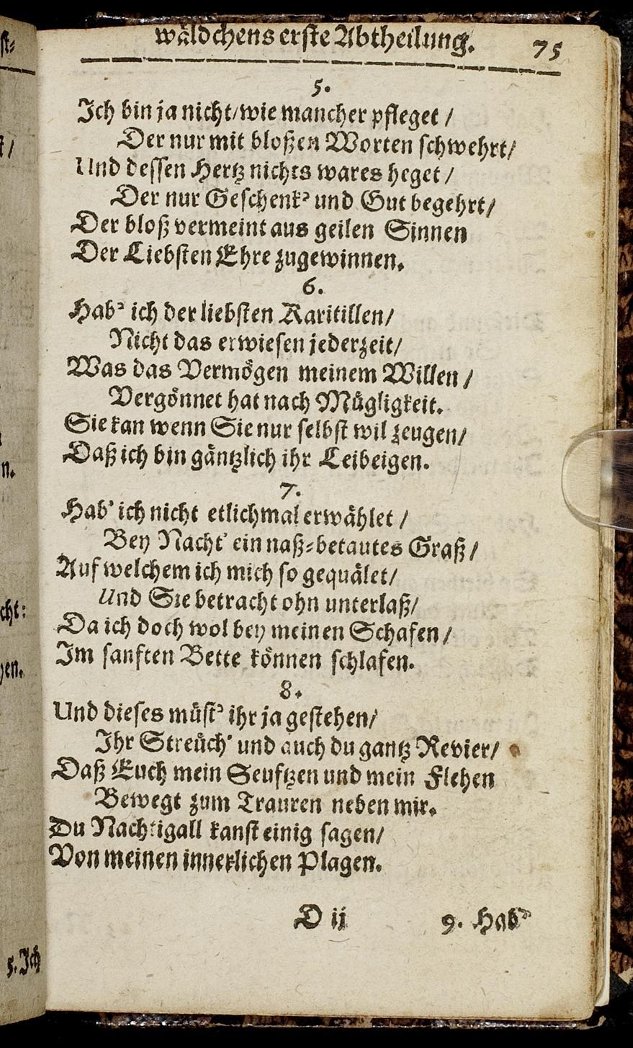 wäldchens erste Abtheilung. 75
5.
Ich bin ja nicht/wie mancher pfleget /
Der nur mit bloßen Worten schwehrt/
Und dessen Hertz nichts wares heget /
Der nur Geschenk' und Gut begehrt/
Der bloß vermeint aus geilen Sinnen
Der Liebsten Ehre zugewinnen.
6.
Hab' ich der liebsten Karitillen/
Nicht das erwiesen jederzeit/
Was das Vermögen meinem Willen /
Vergönnet hat nach Mügligkeit.
Sie kan wenn Sie nur selbst wil zeugen/
Daß ich bin gäntzlich ihr Leibeigen.
7.
Hab' ich nicht etlichmal erwählet /
Bey Nacht' ein naß-betautes Graß /
Auf welchem ich mich so gequälet/
Und Sie betracht ohn unterlaß/
Da ich doch wol bey meinen Schafen /
Im sanften Bette können schlafen.
8.
Und dieses müst' ihr ja gestehen/
Ihr Streüch' und auch du gantz Revier/
Daß Euch mein Seuftzen und mein Flehen
Bewegt zum Trauren neben mir.
Du Nachtigall kanst einig sagen/
Von meinen innerlichen Plagen.
D ij 9. Hab'
5. Ich